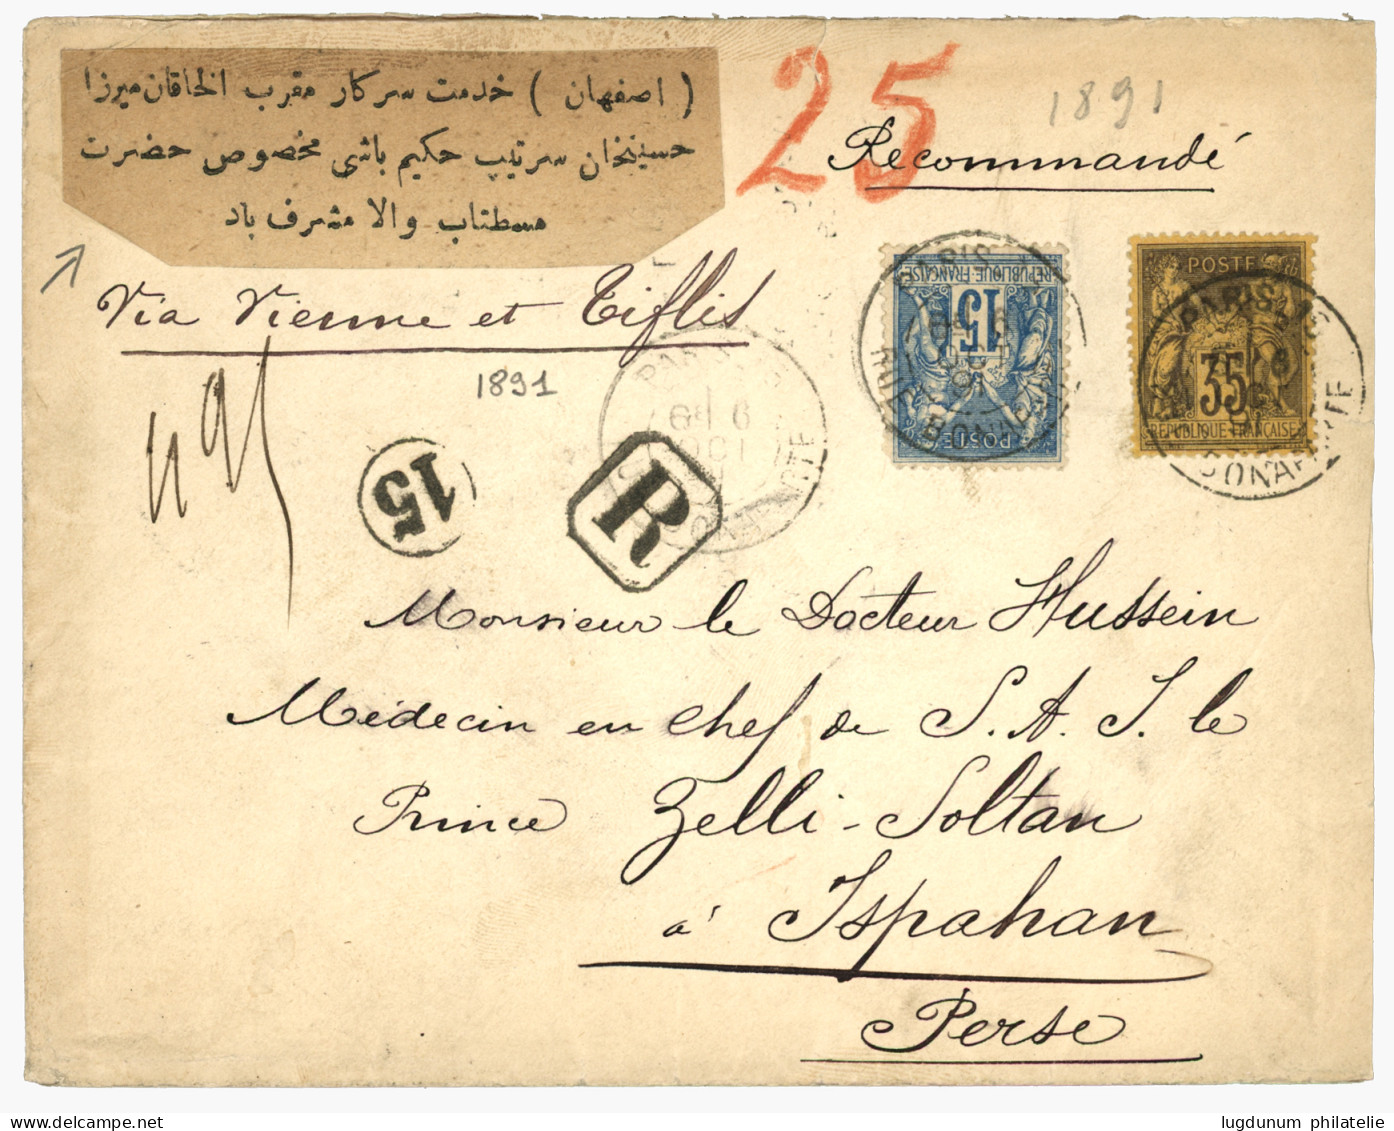 ( اصفهان ) خدمت سرکار مقرب الخاقان میرزا
حسینخان سرتیپ حکیم باشی مخصوص حضرت
مستطاب والا مشرف باد
25
1891
Recommandé
Via Vienne et Tiflis
1891
15
R
15
POSTE
REPUBLIQUE FRANÇAISE
POSTE
35
REPUBLIQUE FRANÇAISE
PARIS
BONAPARTE
Monsieur le Docteur Hussein
Médecin en chef de S. A. I. le
Prince Zelli-Soltan
à Ispahan
Perse
lugdunum philatelie